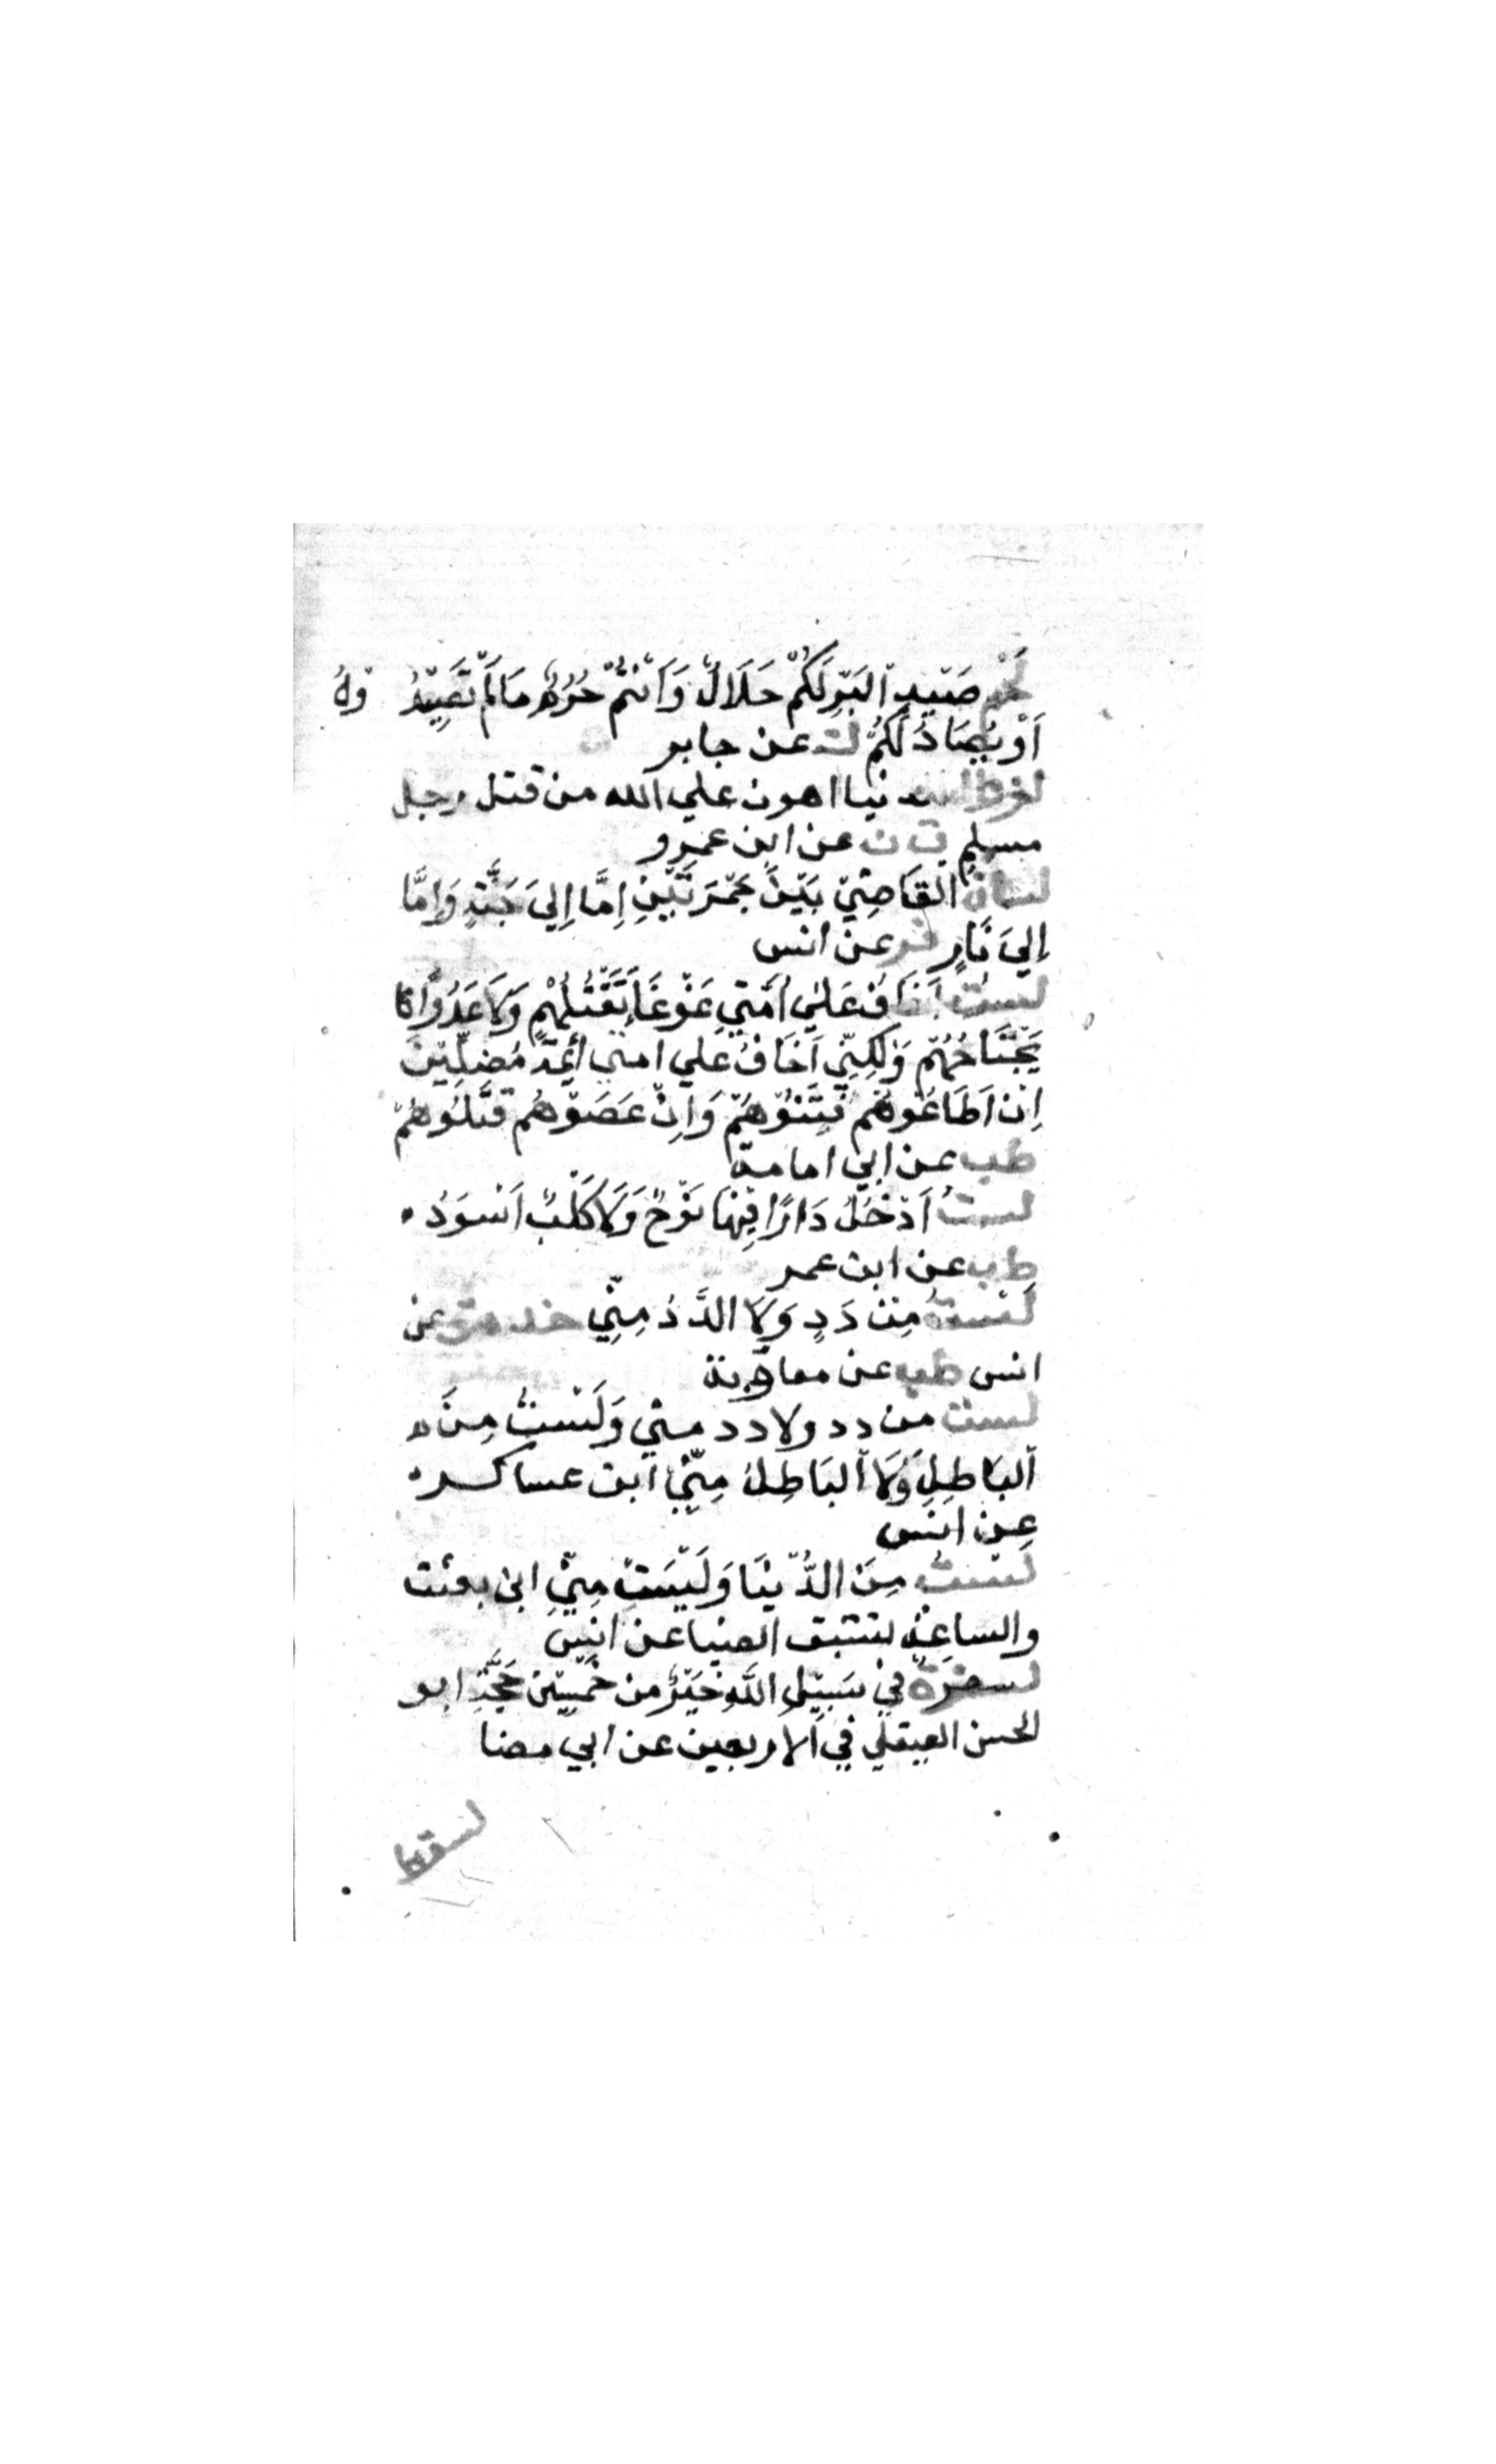 لَحْمُ صَيْدِ البَرِّ لَكُمْ حَلَالٌ وَاَنْتُمْ حُرُمٌ مَا لَمْ تَصِيْدُ وْهُ
اَوْ يُصَادُ لَكُمْ ك عن جابر
لزوال الدنيا اهون علي الله من قتل رجل
مسلم ت ن عن ابن عمرو
لسان القَاضِيْ بَيْنَ جَمْرَتَيْنِ اِمَّا اِليَ جَنَّةٍ وَاِمَّا
اِليَ نَارٍ فر عن انس
لستُ اَخَافُ عَلىٰ اُمَّتِي غَوْغَآءَ تَقْتُلُهُمْ وَلَا عَدُوًّا
يَجْتَاحُهُمْ وَلٰكِنِّي اَخَافُ عَلي امتي اَئِمَّةً مُضِلِّيْنَ
اِنْ اَطَاعُوْهُمْ فَتَنُوْهُمْ وَاِنْ عَصَوْهُمْ قَتَلُوْهُمْ
طب عن ابي امامة
لستُ اَدْخُلُ دَارًا فِيْهَا نَوْحٌ وَلَا كَلْبٌ اَسْوَدُ
طب عن ابن عمر
لَسْتُ مِنْ دَدٍ وَلَا الدَّدُ مِنِّي خد هق عن
انس طب عن معاوية
لست من دد ولا دد مني وَلَسْتُ مِنَ
البَاطِلِ وَلَا البَاطِلُ مِنِّيْ ابن عساكر
عن انس
لَسْتُ مِنَ الدُّنْيَا وَلَيْسَتْ مِنِّيْ اني بعثت
والساعة نستبق الضيا عن انس
لسفرة في سَبِيْلِ اللّٰهِ خَيْرٌ من خَمْسِيْنَ حَجَّةِ ابو
الحسن الصيقلي في الاربعين عن ابي مضا
لسقط